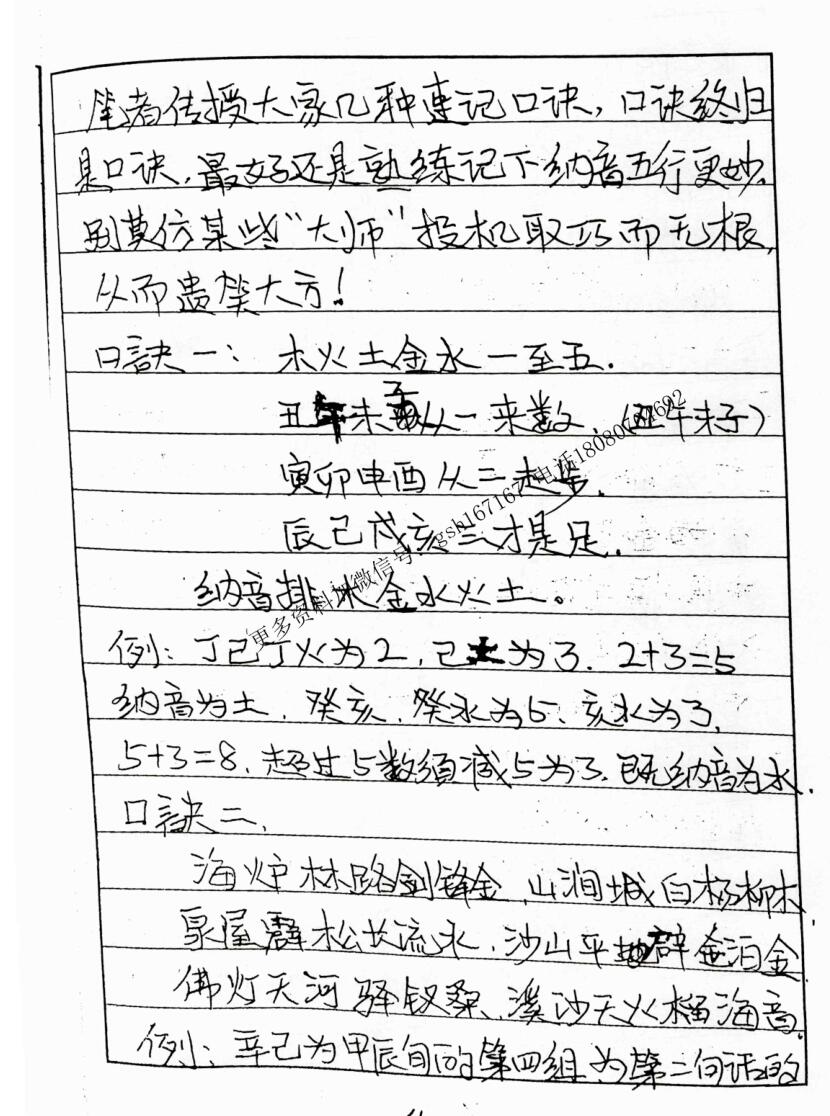 笔者传授大家几种速记口诀,口诀终归
是口诀,最好还是熟练记下纳音五行更妙.
别莫仿某些“大师”投机取巧而无根,
从而贵笑大方!
口訣一: 木火土金水一至五.
丑午未子从一来数.(丑午未子)
寅卯申酉从二起.
辰己戌亥三才是足.
纳音排木金水火土。
例:丁己丁火为2,己为3.2+3=5
纳音为土.癸亥.癸水为5、亥水为3,
5+3=8.超过5数须减5为3.既纳音为水.
口訣二、
海炉林路剑锋金,山涧城白杨柳木
泉屋霹松长流水,沙山平地壁金泊金
佛灯天河驿钗桑、溪沙天火榴海音.
例:辛己为甲辰旬的第四组为第二句话的
更多资料加微信号:gsh167167 电话18080